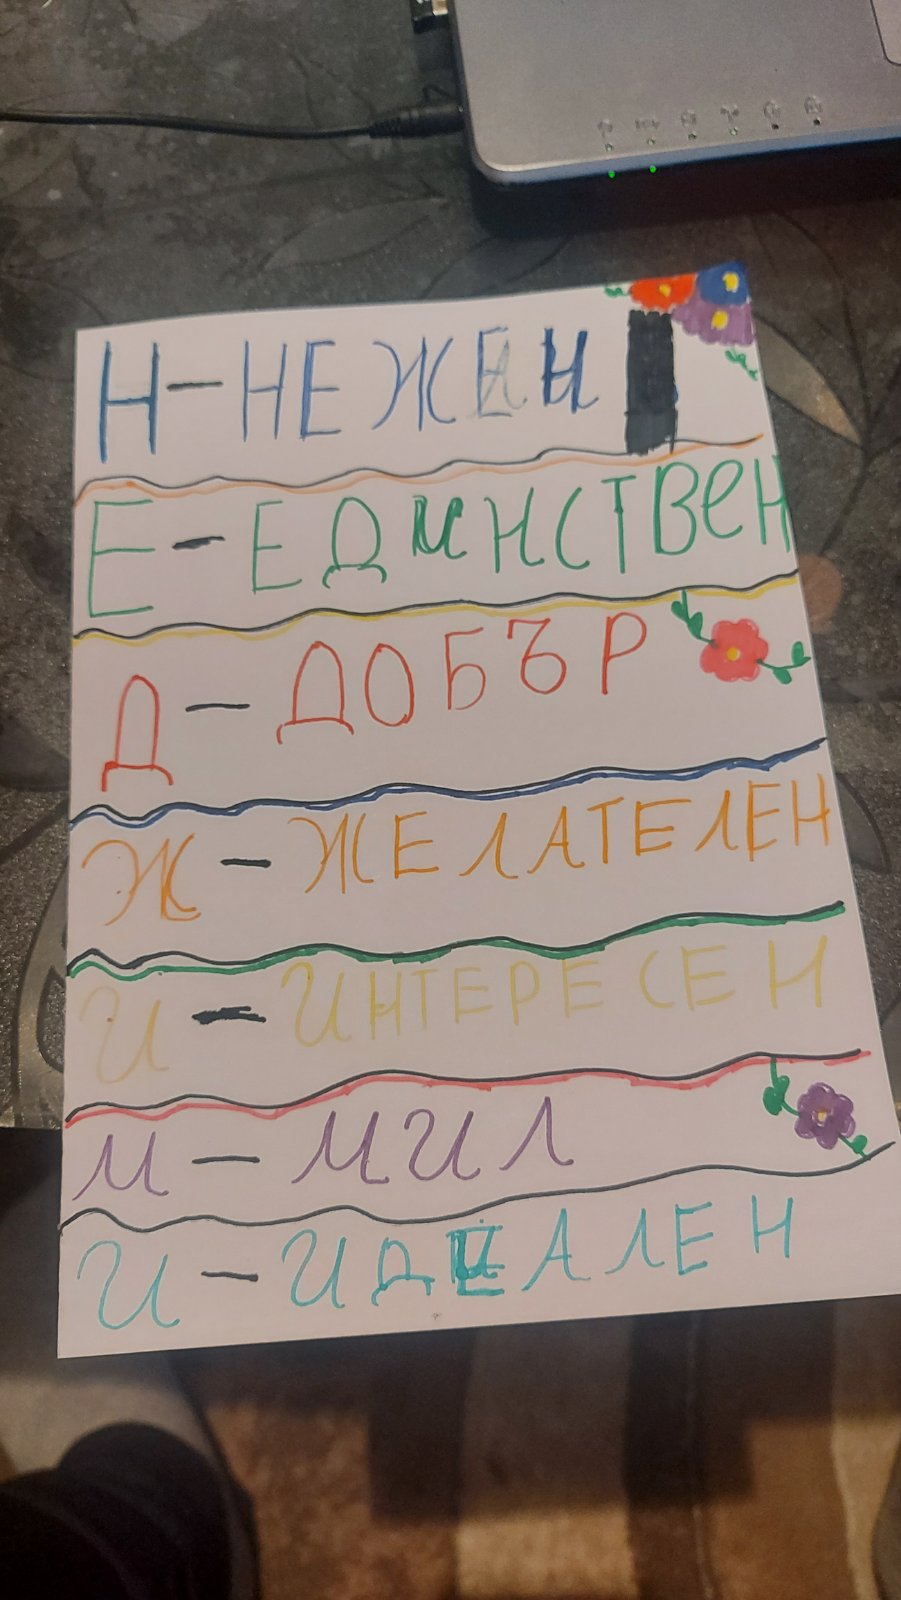 Н - НЕЖЕН
Е - ЕДИНСТВеН
Д - ДОБЪР
Ж - ЖЕЛАТЕЛЕН
И - ИНТЕРЕСЕН
М - МИЛ
И - ИДЕАЛЕН